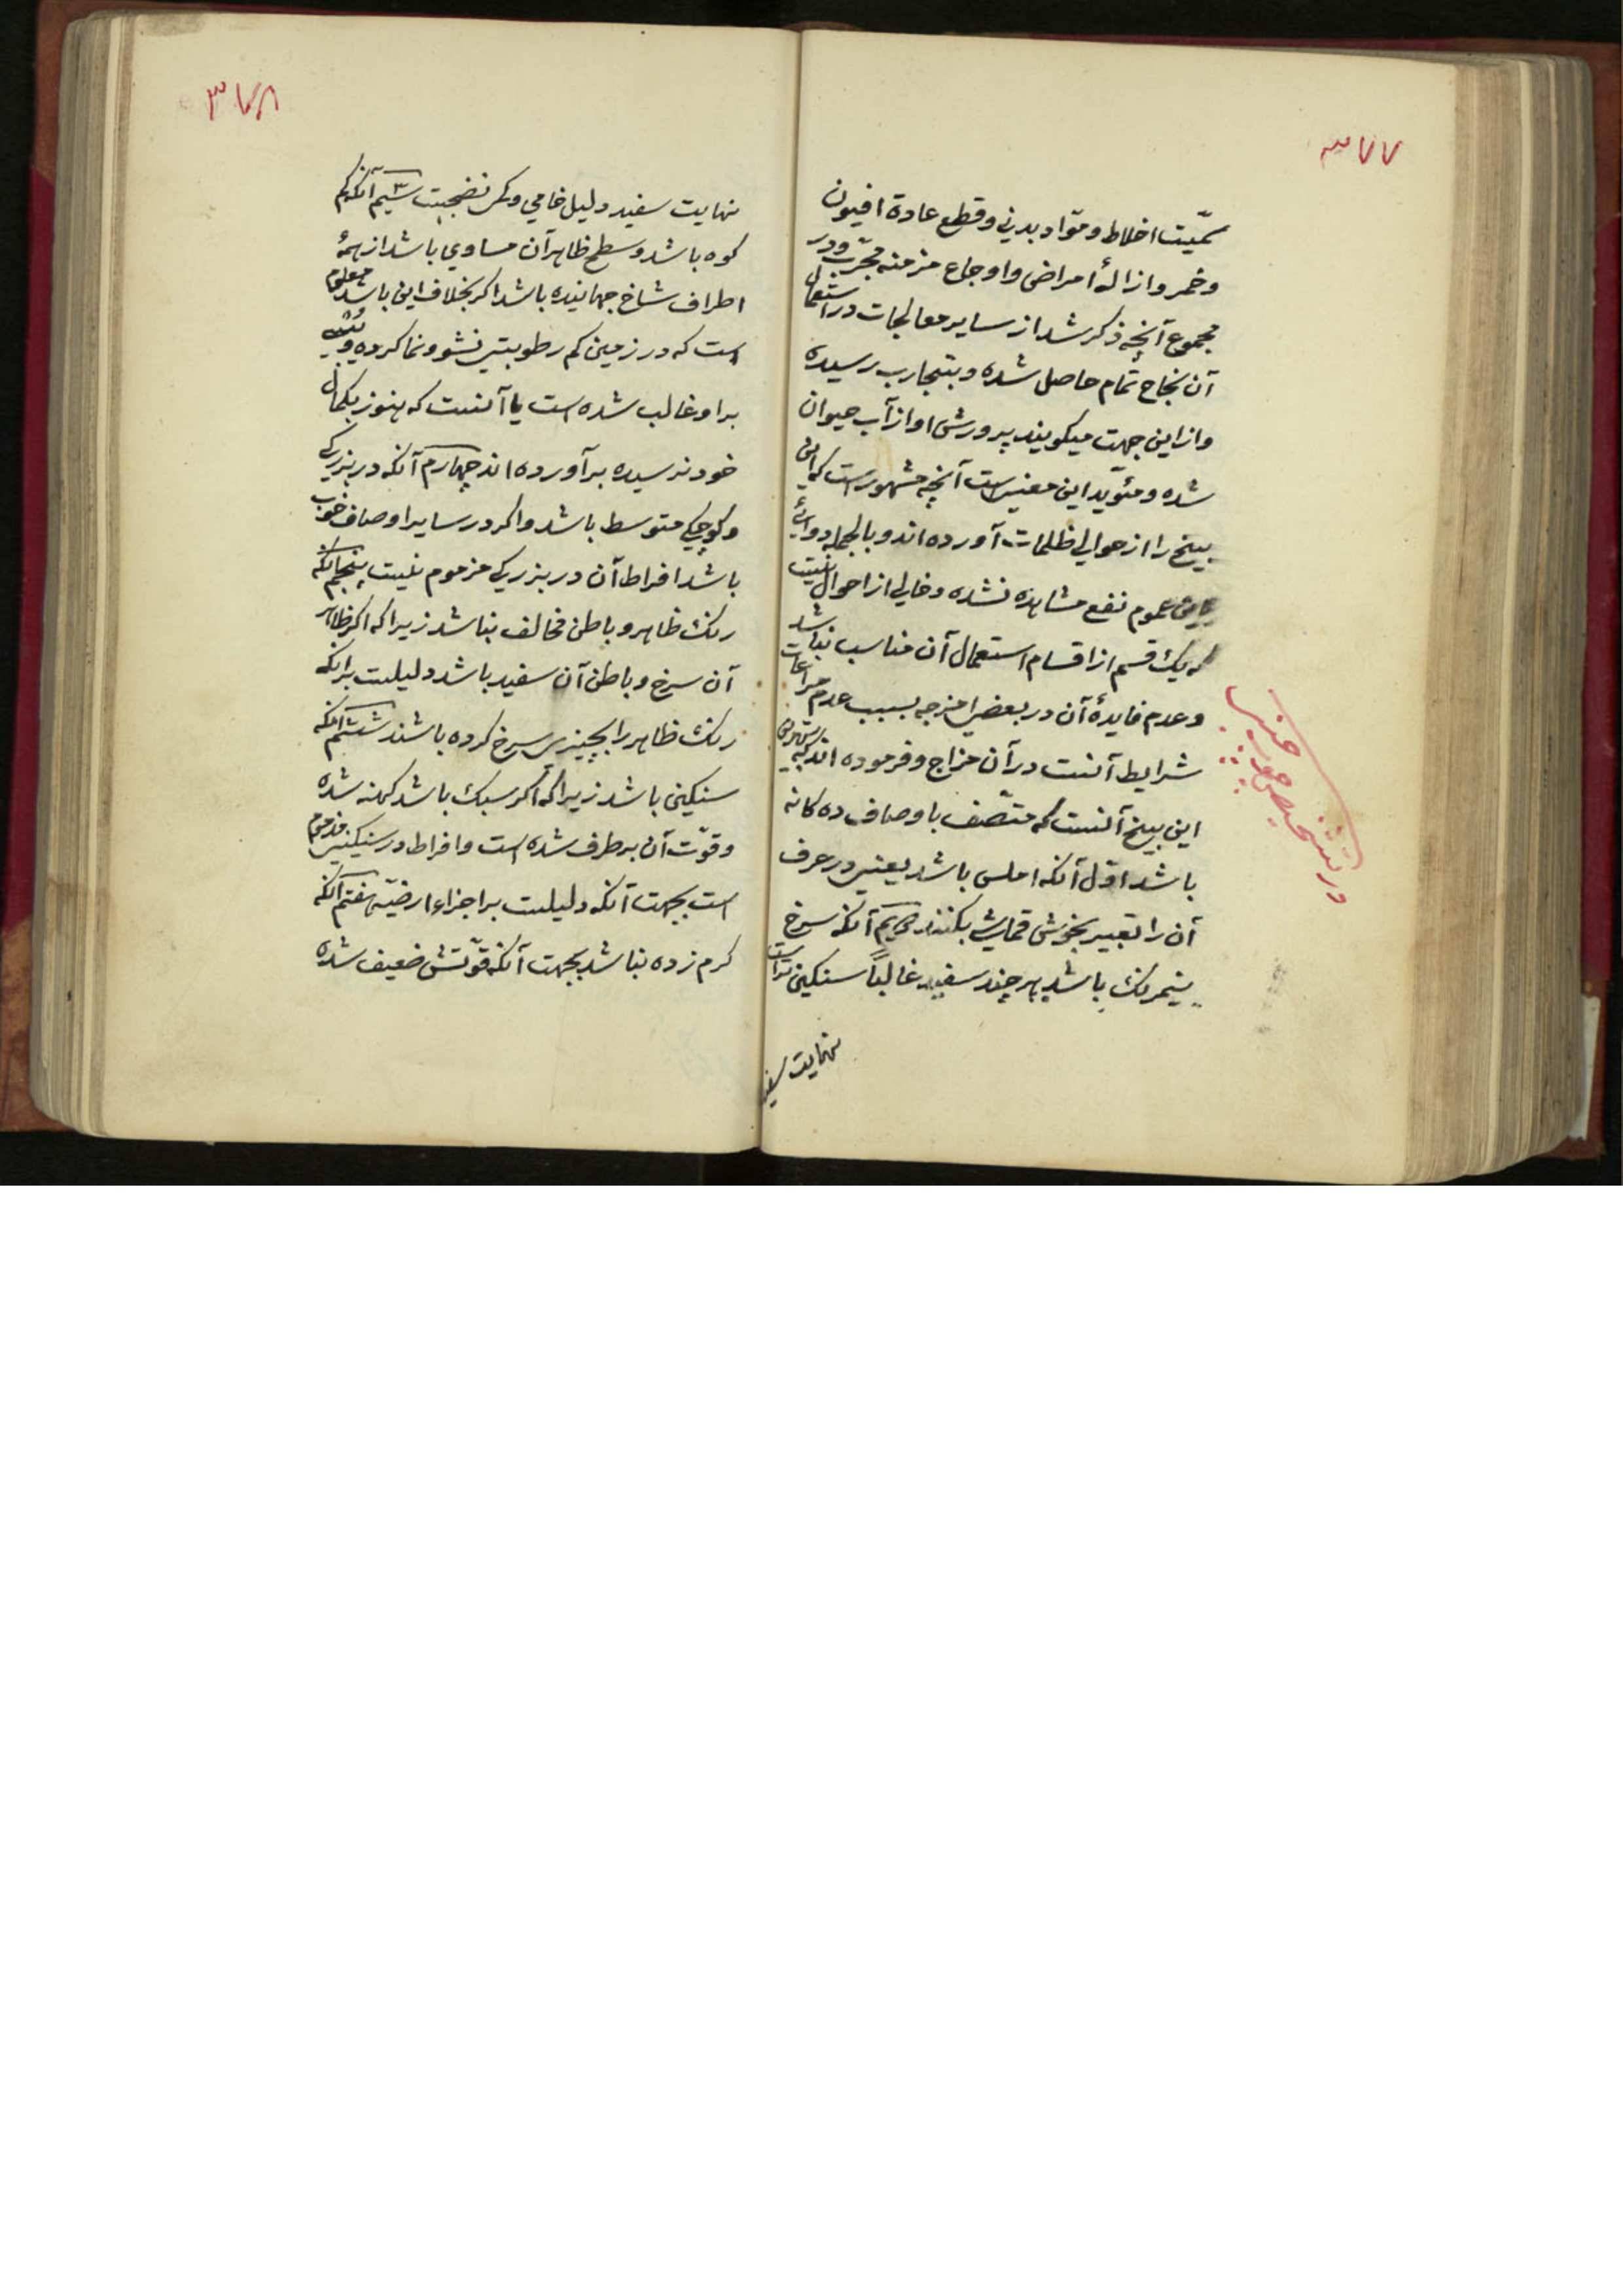 ۳۷۷
سمّیت اخلاط و موّاد بدنی و قطع عادة افیون
و خمر و ازالهٔ امراض و اوجاع مزمنه مجرّب و در
مجموع آنچه ذکر شد از سایر معالجات در استعمال
آن نجاح تمام حاصل شده و بتجارب رسیده
و از این جهت میکویند پرورش او از آب حیوان
شده و مئوید این معنی است آنچه مشهور است که این
بیخ را از حوالی ظلمات آورده اند و بالجمله دوائی
باین عموم نفع مشاهده نشده و خالی از احوال نیست
که یک قسم از اقسام استعمال آن مناسب نباشد
و عدم فایدهٔ آن در بعضی امزجه بسبب عدم مراعات
شرایط آنست در آن مزاج و فرموده اند که بهترین
این بیخ آنست که متّصف باوصاف ده کانه
باشد اوّل آنکه املس باشد یعنی در عرف
آن را تعبیر بخوش قماش بکنند دویم آنکه سرخ
نیمرنک باشد هر چند سفید غالباً سنکین تر است
نهایت سفید
در تشخیص چوب چینی
۳۷۸
نهایت سفید دلیل خامی و کم نضجیت سیم آنکه کم
کوه باشد و سطح ظاهر آن مساوی باشد از همهٔ
اطراف شاخ جهانیده باشد اکر بخلاف این باشد معلوم
است که در زمین کم رطوبتی نشو و نما کرده و یبس
بر او غالب شده است یا آنست که هنوز بکمال
خود نرسیده برآورده اند چهارم آنکه در بزرکی
و کوچکی متوسط باشد و اکر در سایر اوصاف خوب
باشد افراط آن در بزرکی مزموم نیست پنجم آنکه
رنک ظاهر و باطن مخالف نباشد زیرا که اکر ظاهر
آن سرخ و باطن آن سفید باشد دلیلست بر آنکه
رنک ظاهر را بچیزی سرخ کرده باشند ششم آنکه
سنکین باشد زیرا که اکر سبک باشد کهنه شده
و قوّت آن برطرف شده است و افراط در سنکینی مذموم
است بجهت آنکه دلیلست بر اجزاء ارضیّه هفتم آنکه
کرم زده نباشد بجهت آنکه قوّتش ضعیف شده